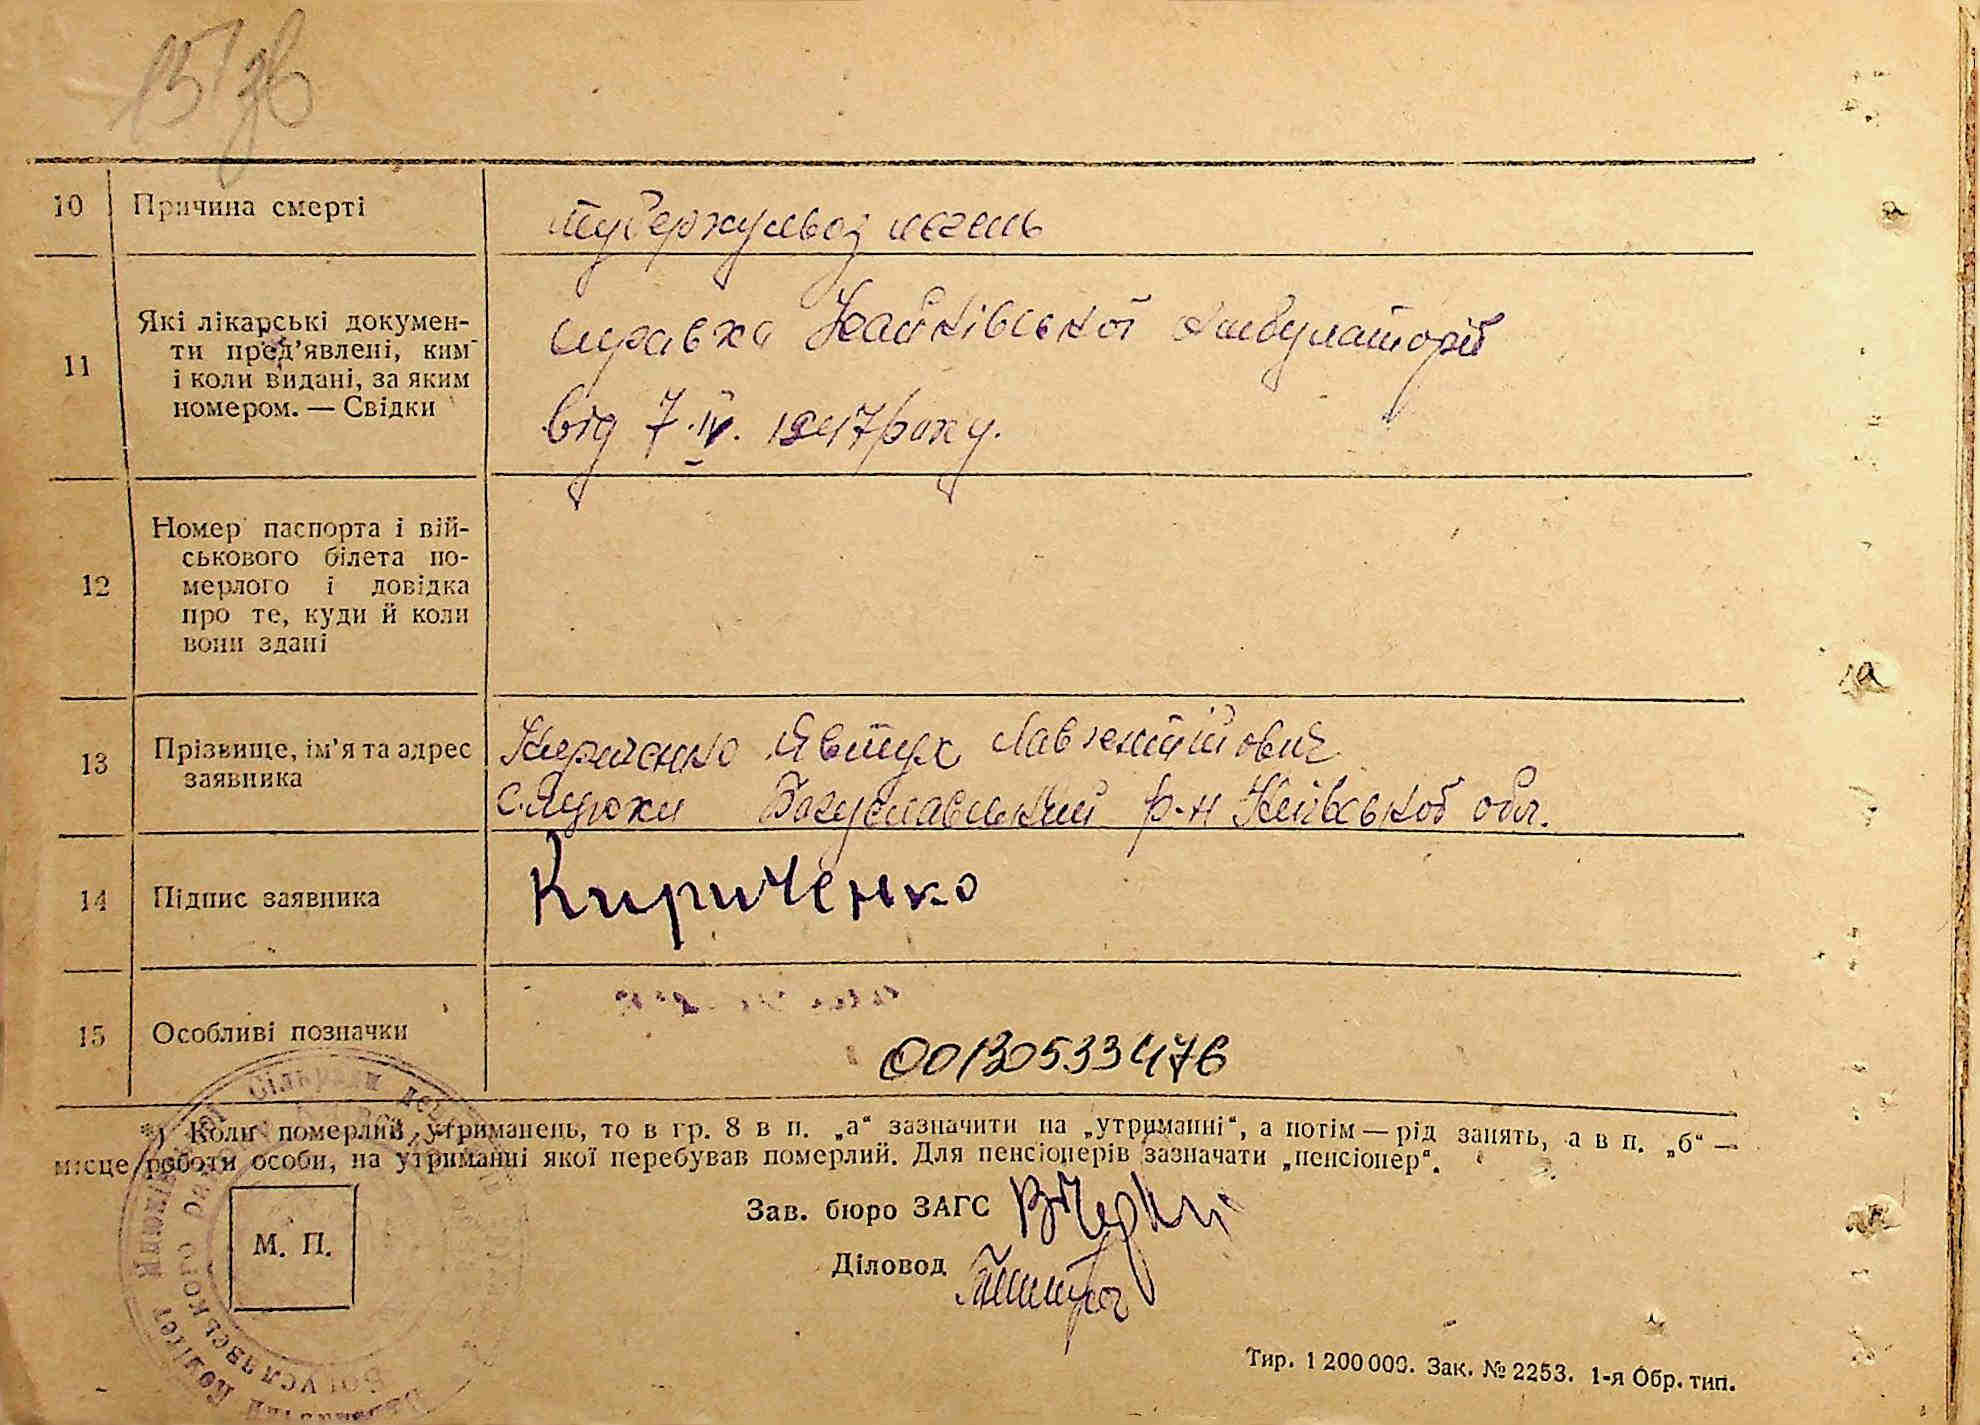 10 Причина смерті
туберкульоз легень
11 Які лікарські докумен-
ти пред'явлені, ким
і коли видані, за яким
номером. — Свідки
справка амбулаторії
від 7.IV. 1947 року.
12 Номер паспорта і вій-
ськового білета по-
мерлого і довідка
про те, куди й коли
вони здані
13 Прізвище, ім'я та адрес
заявника
Кириченко Явтух
с. Яцюки Богуславський р-н Київської обл.
14 Підпис заявника
Кириченко
15 Особливі позначки
00130533476
*) Коли померлий утриманець, то в гр. 8 в п. „а“ зазначити на „утриманні“, а потім — рід занять, а в п. „б“ —
місце роботи особи, на утриманні якої перебував померлий. Для пенсіонерів зазначати „пенсіонер“.
Зав. бюро ЗАГС
М. П.
Діловод
Тир. 1 200 000. Зак. № 2253. 1-я Обр. тип.